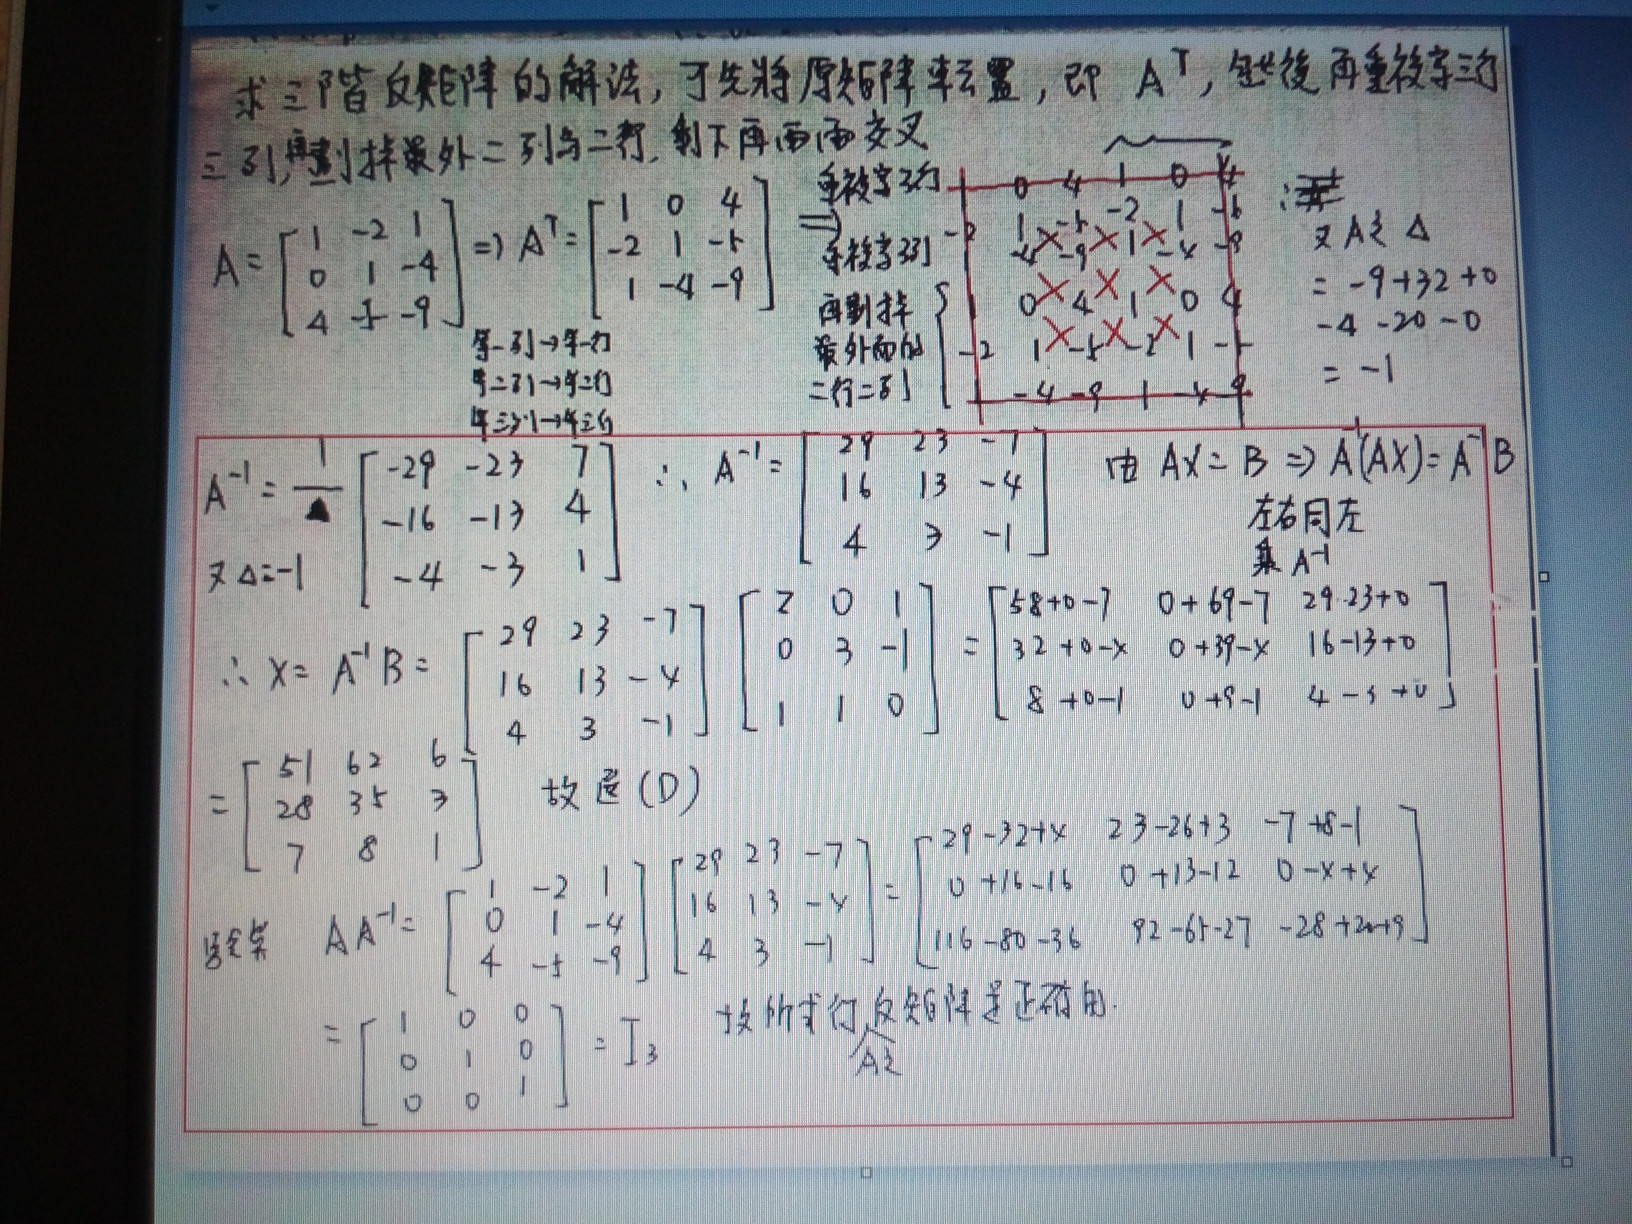 求三階反矩陣的解法,可先將原矩陣轉置,即 A^T,然後再重複写三行
三列,再劃掉最外二列与二行.剩下再両両交叉
A = [1 -2 1; 0 1 -4; 4 -5 -9] => A^T = [1 0 4; -2 1 -5; 1 -4 -9] =>
重複写3行
重複写3列
再劃掉
最外面的
二行二列
第一列→第一行
第二列→第二行
第三列→第三行
1 0 4 1 0 4
-2 1 -5 -2 1 -5
1 -4 -9 1 -4 -9
1 0 4 1 0 4
-2 1 -5 -2 1 -5
1 -4 -9 1 -4 -9
又 A之 Δ
= -9+32+0
-4 -20 -0
= -1
A^-1 = 1/Δ [-29 -23 7; -16 -13 4; -4 -3 1] ∴ A^-1 = [29 23 -7; 16 13 -4; 4 3 -1] 由 AX = B => A^-1(AX) = A^-1 B
又 Δ=-1
左右同左
乘 A^-1
∴ X = A^-1 B = [29 23 -7; 16 13 -4; 4 3 -1] [2 0 1; 0 3 -1; 1 1 0] = [58+0-7 0+69-7 29-23+0; 32+0-4 0+39-4 16-13+0; 8+0-1 0+9-1 4-3+0]
= [51 62 6; 28 35 3; 7 8 1] 故選(D)
驗算 AA^-1 = [1 -2 1; 0 1 -4; 4 -5 -9] [29 23 -7; 16 13 -4; 4 3 -1] = [29-32+4 23-26+3 -7+8-1; 0+16-16 0+13-12 0-4+4; 116-80-36 92-65-27 -28+20+9]
= [1 0 0; 0 1 0; 0 0 1] = I3 故所求得A之反矩陣是正确的.